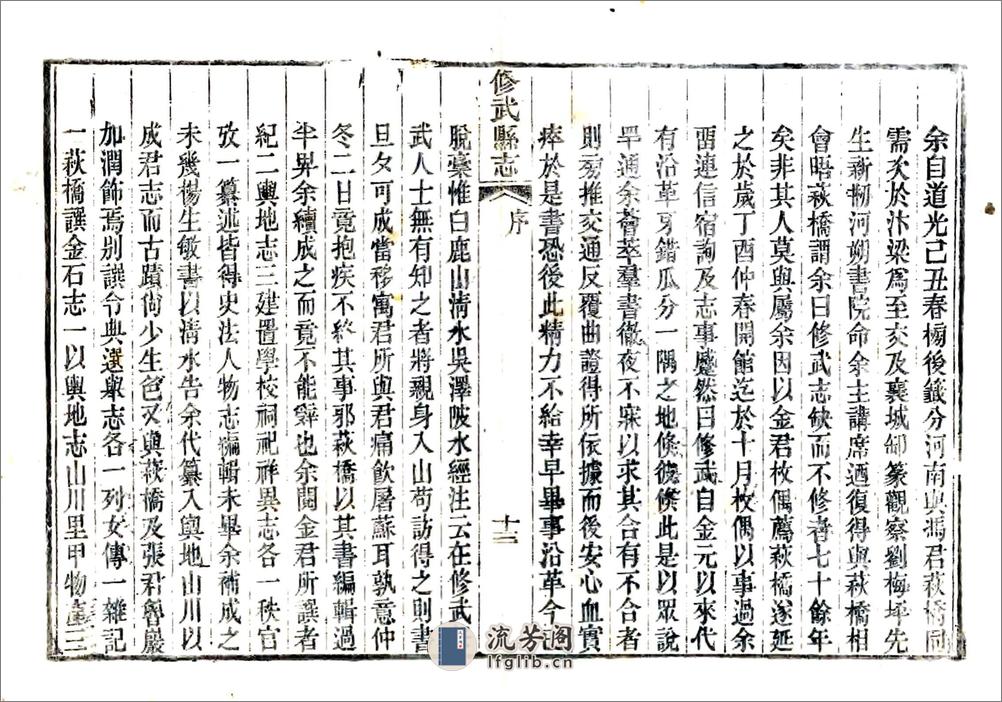 余自道光己丑春榜後籤分河南與馮君萩橋同
需次於汴梁爲至交及襄城卸篆觀察劉梅坪先
生新捌河朔書院命余主講席迺復得與萩橋相
會晤萩橋謂余曰修武志缺而不修者七十餘年
矣非其人莫與屬余因以金君枚偶薦萩橋遂延
之於歲丁酉仲春開館迄於十月枚偶以事過余
畱連信宿詢及志事蹙然曰修武自金元以來代
有沿革牙錯瓜分一隅之地倏復倏此是以眾說
罕通余薈萃羣書徹夜不寐以求其合有不合者
則旁推交通反覆曲證得所依據而後安心血實
瘁於是書恐後此精力不給幸早畢事沿革今已
修武縣志
序
十三
脫稾惟白鹿山淸水吳澤陂水經注云在修武
武人士無有知之者將親身入山苟訪得之則書
旦夕可成當移寓君所與君痛飮屠蘇耳孰意仲
冬二日竟抱疾不終其事邪萩橋以其書編輯過
半畀余續成之而竟不能辤也余閱金君所譔者
紀二輿地志三建置學校祠祀祥異志各一秩官
攷一纂述皆得史法人物志編輯未畢余補成之
未幾楊生敏書以淸水告余代纂入輿地山川以
成君志而古蹟尙少生色又與萩橋及張君魯巖
加潤飾焉别譔令典選舉志各一列女傳一雜記
一萩橋譔金石志一以輿地志山川里甲物產三
流芳阁
lfglib.cn